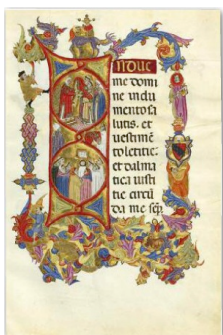 INDUE
me domi
ne indu
mento sa
lutis. et
uestimē
to letitie.
et dalma
tica iusti
tie circū
da me sēp